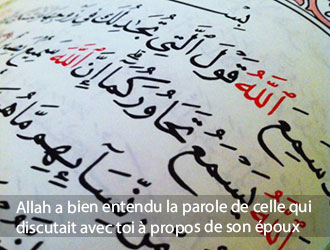 بِسْ
سَمِعَ ٱللَّهُ قَوْلَ ٱلَّتِي تُجَٰدِلُكَ فِي
ٱللَّهُ يَسْمَعُ تَحَاوُرَكُمَا إِنَّ ٱللَّهَ سَمِيعٌ
مِّن نِّسَآئِهِم مَّا هُ
Allah a bien entendu la parole de celle qui
discutait avec toi à propos de son époux